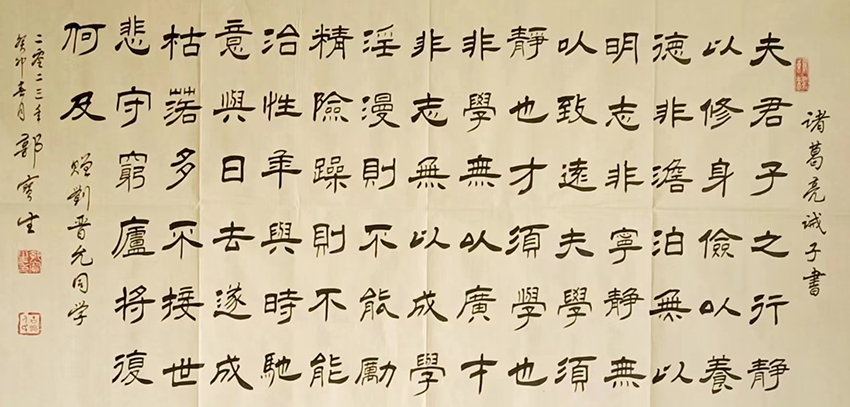 诸葛亮诫子書
夫君子之行靜
以修身儉以養
德非澹泊無以
明志非寧靜無
以致遠夫學須
靜也才須學也
非學無以廣才
非志無以成學
淫漫則不能勵
精險躁則不能
治性年與時馳
意與日去遂成
枯落多不接世
悲守窮廬將復
何及
赠劉晋允同学
二零二三年
癸卯春月 郭寶生